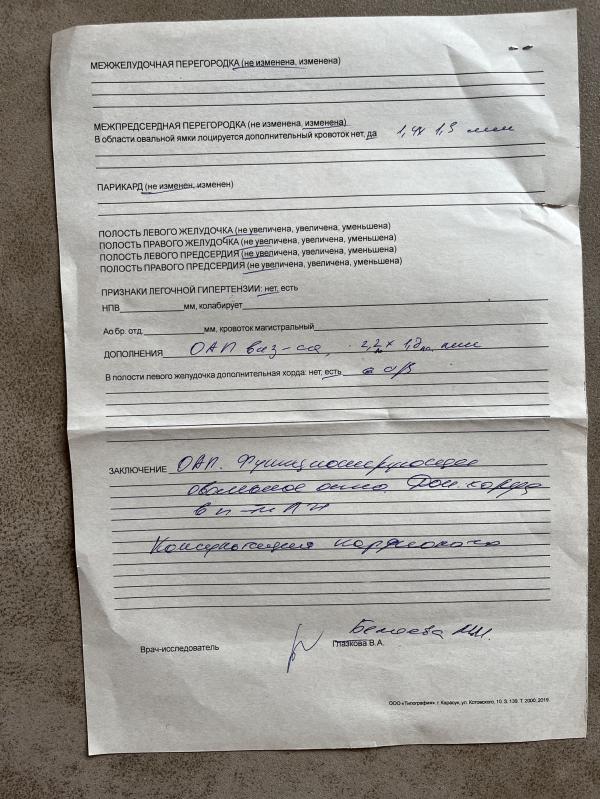 МЕЖЖЕЛУДОЧНАЯ ПЕРЕГОРОДКА (не изменена, изменена)
МЕЖПРЕДСЕРДНАЯ ПЕРЕГОРОДКА (не изменена, изменена)
В области овальной ямки лоцируется дополнительный кровоток нет, да 1,4х 1,3 мм
ПАРИКАРД (не изменен, изменен)
ПОЛОСТЬ ЛЕВОГО ЖЕЛУДОЧКА (не увеличена, увеличена, уменьшена)
ПОЛОСТЬ ПРАВОГО ЖЕЛУДОЧКА (не увеличена, увеличена, уменьшена)
ПОЛОСТЬ ЛЕВОГО ПРЕДСЕРДИЯ (не увеличена, увеличена, уменьшена)
ПОЛОСТЬ ПРАВОГО ПРЕДСЕРДИЯ (не увеличена, увеличена, уменьшена)
ПРИЗНАКИ ЛЕГОЧНОЙ ГИПЕРТЕНЗИИ: нет, есть
НПВ мм, колабирует
Ао бр. отд. мм, кровоток магистральный
ДОПОЛНЕНИЯ ОАП виз-ся, 2,2 х 1,8 мм
В полости левого желудочка дополнительная хорда: нет, есть
ЗАКЛЮЧЕНИЕ ОАП. Функционирующее
овальное окно. Доп. хорда
Консультация кардиолога
Врач-исследователь Глазкова В.А.
ООО «Типография», г. Карасук, ул. Котовского, 10. З. 139. Т. 2000. 2019.